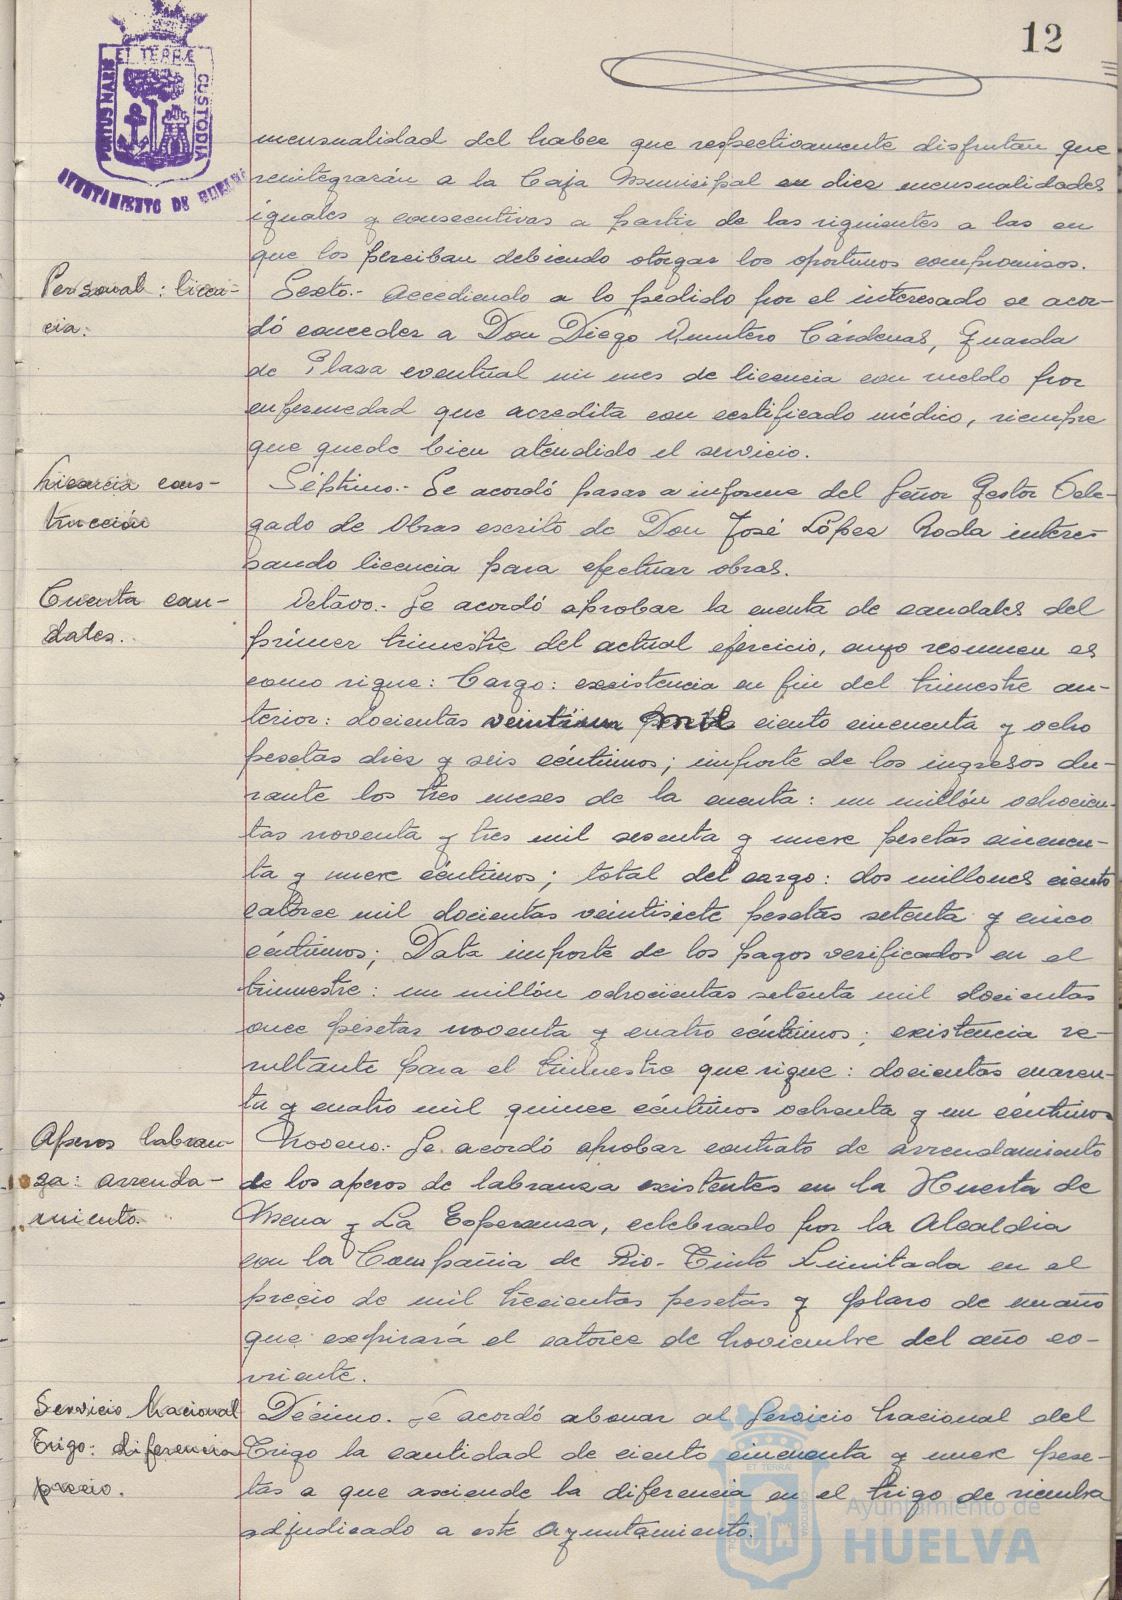 12
PORTUS MARIS
ET TERRÆ
CUSTODIA
AYUNTAMIENTO DE HUELVA
mensualidad del haber que respectivamente disfrutan que
reintegrarán a la Caja Municipal en diez mensualidades
iguales y consecutivas a partir de las siguientes a las en
que los perciban debiendo otorgar los oportunos compromisos.
Personal: licen-
cia:
Sexto.- Accediendo a lo pedido por el interesado se acor-
dó conceder a Don Diego Quintero Cárdenas, Guarda
de Plaza eventual un mes de licencia con sueldo por
enfermedad que acredita con certificado médico, siempre
que quede bien atendido el servicio.
Licencia cons-
trucción
Séptimo.- Se acordó pasar a informe del Señor Gestor Dele-
gado de Obras escrito de Don José López Roda intere-
sando licencia para efectuar obras.
Cuenta cau-
dales.
Octavo.- Se acordó aprobar la cuenta de caudales del
primer trimestre del actual ejercicio, cuyo resumen es
como sigue: Cargo: existencia en fin del trimestre an-
terior: docientas veintiun mil ciento cincuenta y ocho
pesetas diez y seis céntimos; importe de los ingresos du-
rante los tres meses de la cuenta: un millón ochocien-
tas noventa y tres mil sesenta y nueve pesetas cincuen-
ta y nueve céntimos; total del cargo: dos millones ciento
catorce mil docientas veintisiete pesetas setenta y cinco
céntimos; Data importe de los pagos verificados en el
trimestre: un millón ochocientas setenta mil docientas
once pesetas noventa y cuatro céntimos; existencia re-
sultante para el trimestre que sigue: docientas cuaren-
ta y cuatro mil quince céntimos ochenta y un céntimos
Aperos labran-
za: arrenda-
miento.
Noveno.- Se acordó aprobar contrato de arrendamiento
de los aperos de labranza existentes en la Huerta de
Mena y La Esperanza, celebrado por la Alcaldia
con la Compañia de Rio-Tinto Limitada en el
precio de mil trecientas pesetas y plazo de un año
que expirará el catorce de Noviembre del año co-
rriente.
Servicio Nacional
Trigo: diferencia
precio.
Décimo.- Se acordó abonar al Servicio Nacional del
Trigo la cantidad de ciento cincuenta y nueve pese-
tas a que asciende la diferencia en el trigo de siembra
adjudicado a este Ayuntamiento.
Ayuntamiento de
HUELVA